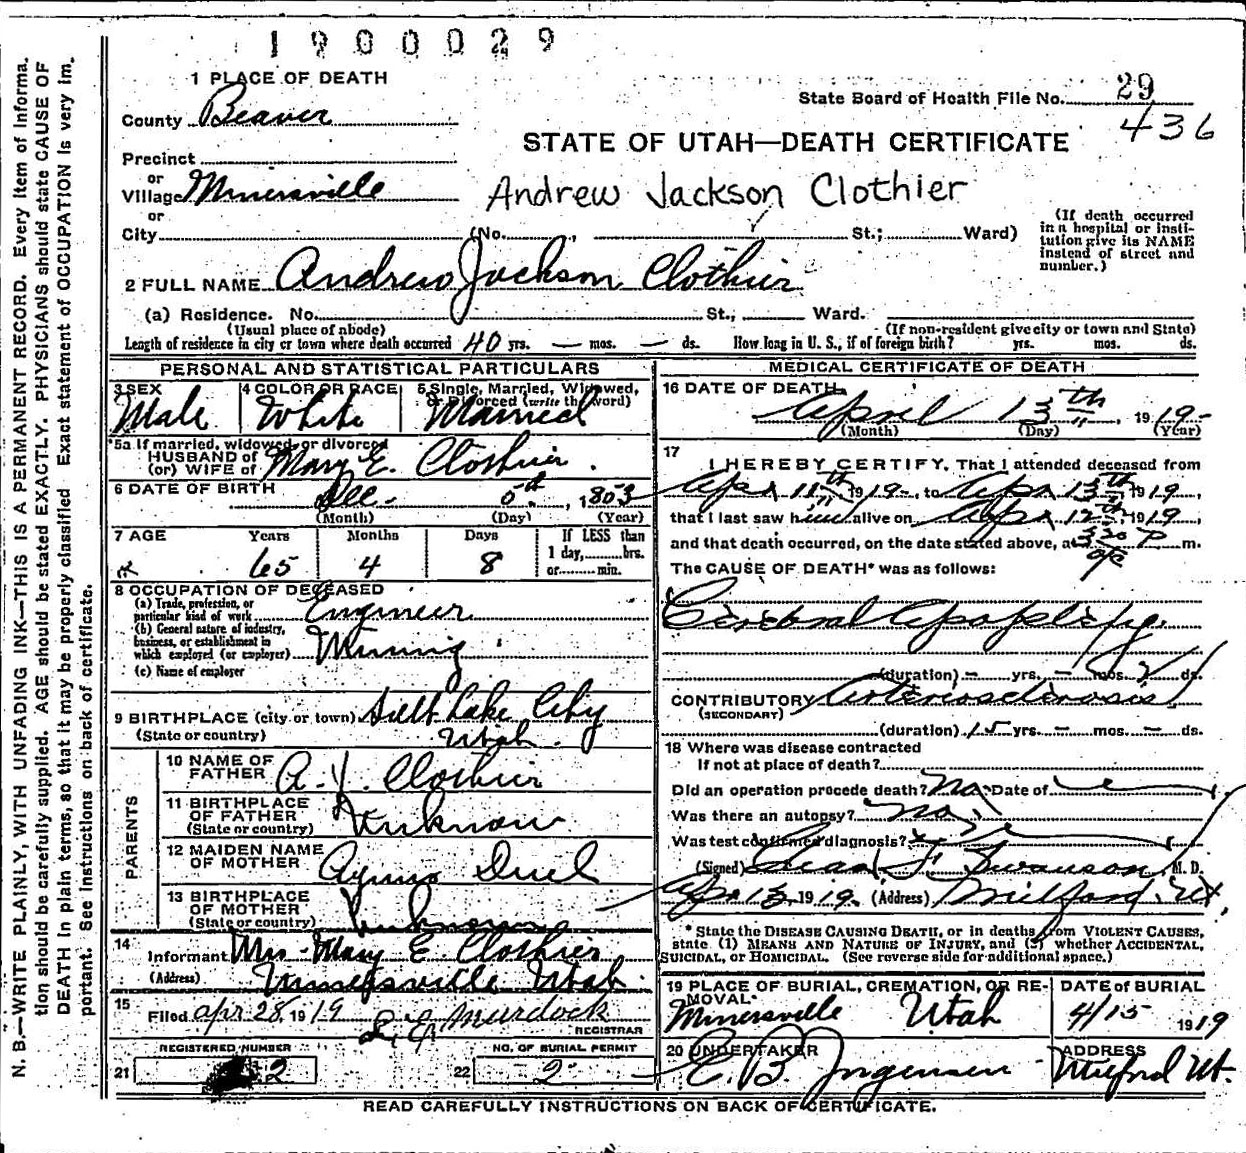 1900029
1 PLACE OF DEATH
County Beaver
State Board of Health File No. 29
436
STATE OF UTAH—DEATH CERTIFICATE
Precinct
or
Village Minersville
Andrew Jackson Clothier
or
City (No. , St.; Ward)
(If death occurred in a hospital or insti-
tution give its NAME instead of street and number.)
2 FULL NAME Andrew Jackson Clothier
(a) Residence. No. St., Ward.
(Usual place of abode) (If non-resident give city or town and State)
Length of residence in city or town where death occurred 40 yrs. — mos. — ds. How long in U. S., if of foreign birth? yrs. mos. ds.
PERSONAL AND STATISTICAL PARTICULARS
3 SEX 4 COLOR OR RACE 5 Single, Married, Widowed,
or Divorced (write the word)
Male White Married
5a If married, widowed, or divorced
HUSBAND of
(or) WIFE of Mary E. Clothier.
6 DATE OF BIRTH Dec. 5th, 1853
(Month) (Day) (Year)
7 AGE Years Months Days If LESS than
1 day, hrs.
or min.
65 4 8
8 OCCUPATION OF DECEASED
(a) Trade, profession, or
particular kind of work Engineer
(b) General nature of industry,
business, or establishment in
which employed (or employer) Mining
(c) Name of employer
9 BIRTHPLACE (city or town) Salt Lake City
(State or country) Utah.
PARENTS
10 NAME OF
FATHER A. J. Clothier
11 BIRTHPLACE
OF FATHER
(State or country) Unknown
12 MAIDEN NAME
OF MOTHER
13 BIRTHPLACE
OF MOTHER
(State or country) Unknown
14
Informant Mrs Mary E Clothier
(Address) Minersville Utah
15
Filed Apr 28, 1919 Murdock
REGISTRAR
REGISTERED NUMBER NO. OF BURIAL PERMIT
21 2 22 2
MEDICAL CERTIFICATE OF DEATH
16 DATE OF DEATH
April 13th, 1919-
(Month) (Day) (Year)
17
I HEREBY CERTIFY, That I attended deceased from
Apr 11th 1919-, to Apr 13th, 1919,
that I last saw him alive on Apr 12th, 1919,
and that death occurred, on the date stated above, at 320 P m.
The CAUSE OF DEATH* was as follows:
Cerebral Apoplexy.
(duration) — yrs. — mos. 2 ds.
CONTRIBUTORY Arteriosclerosis
(SECONDARY)
(duration) 15 yrs. — mos. — ds.
18 Where was disease contracted
If not at place of death?
Did an operation precede death? No. Date of
Was there an autopsy? No.
Was test confirmed diagnosis?
(Signed) Swanson, M. D.
Apr 13, 1919. (Address) Milford, Ut,
* State the DISEASE CAUSING DEATH, or in deaths from VIOLENT CAUSES,
state (1) MEANS AND NATURE OF INJURY, and (2) whether ACCIDENTAL,
SUICIDAL, OR HOMICIDAL. (See reverse side for additional space.)
19 PLACE OF BURIAL, CREMATION, OR RE-
MOVAL DATE of BURIAL
Minersville Utah 4/15 1919
20 UNDERTAKER ADDRESS
C. B. Jorgensen Milford Ut.
READ CAREFULLY INSTRUCTIONS ON BACK OF CERTIFICATE.
N. B.—WRITE PLAINLY, WITH UNFADING INK—THIS IS A PERMANENT RECORD. Every item of informa-
tion should be carefully supplied. AGE should be stated EXACTLY. PHYSICIANS should state CAUSE OF
DEATH in plain terms, so that it may be properly classified. Exact statement of OCCUPATION is very im-
portant. See instructions on back of certificate.